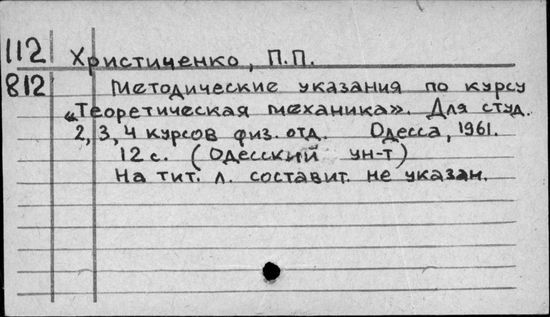 112 Христиченко, П.П.
812 Методические указания по курсу
«Теоретическая механика». Для студ.
2, 3, 4 курсов физ. отд. Одесса, 1961.
12 с. (Одесский ун-т)
На тит. л. составит. не указан.